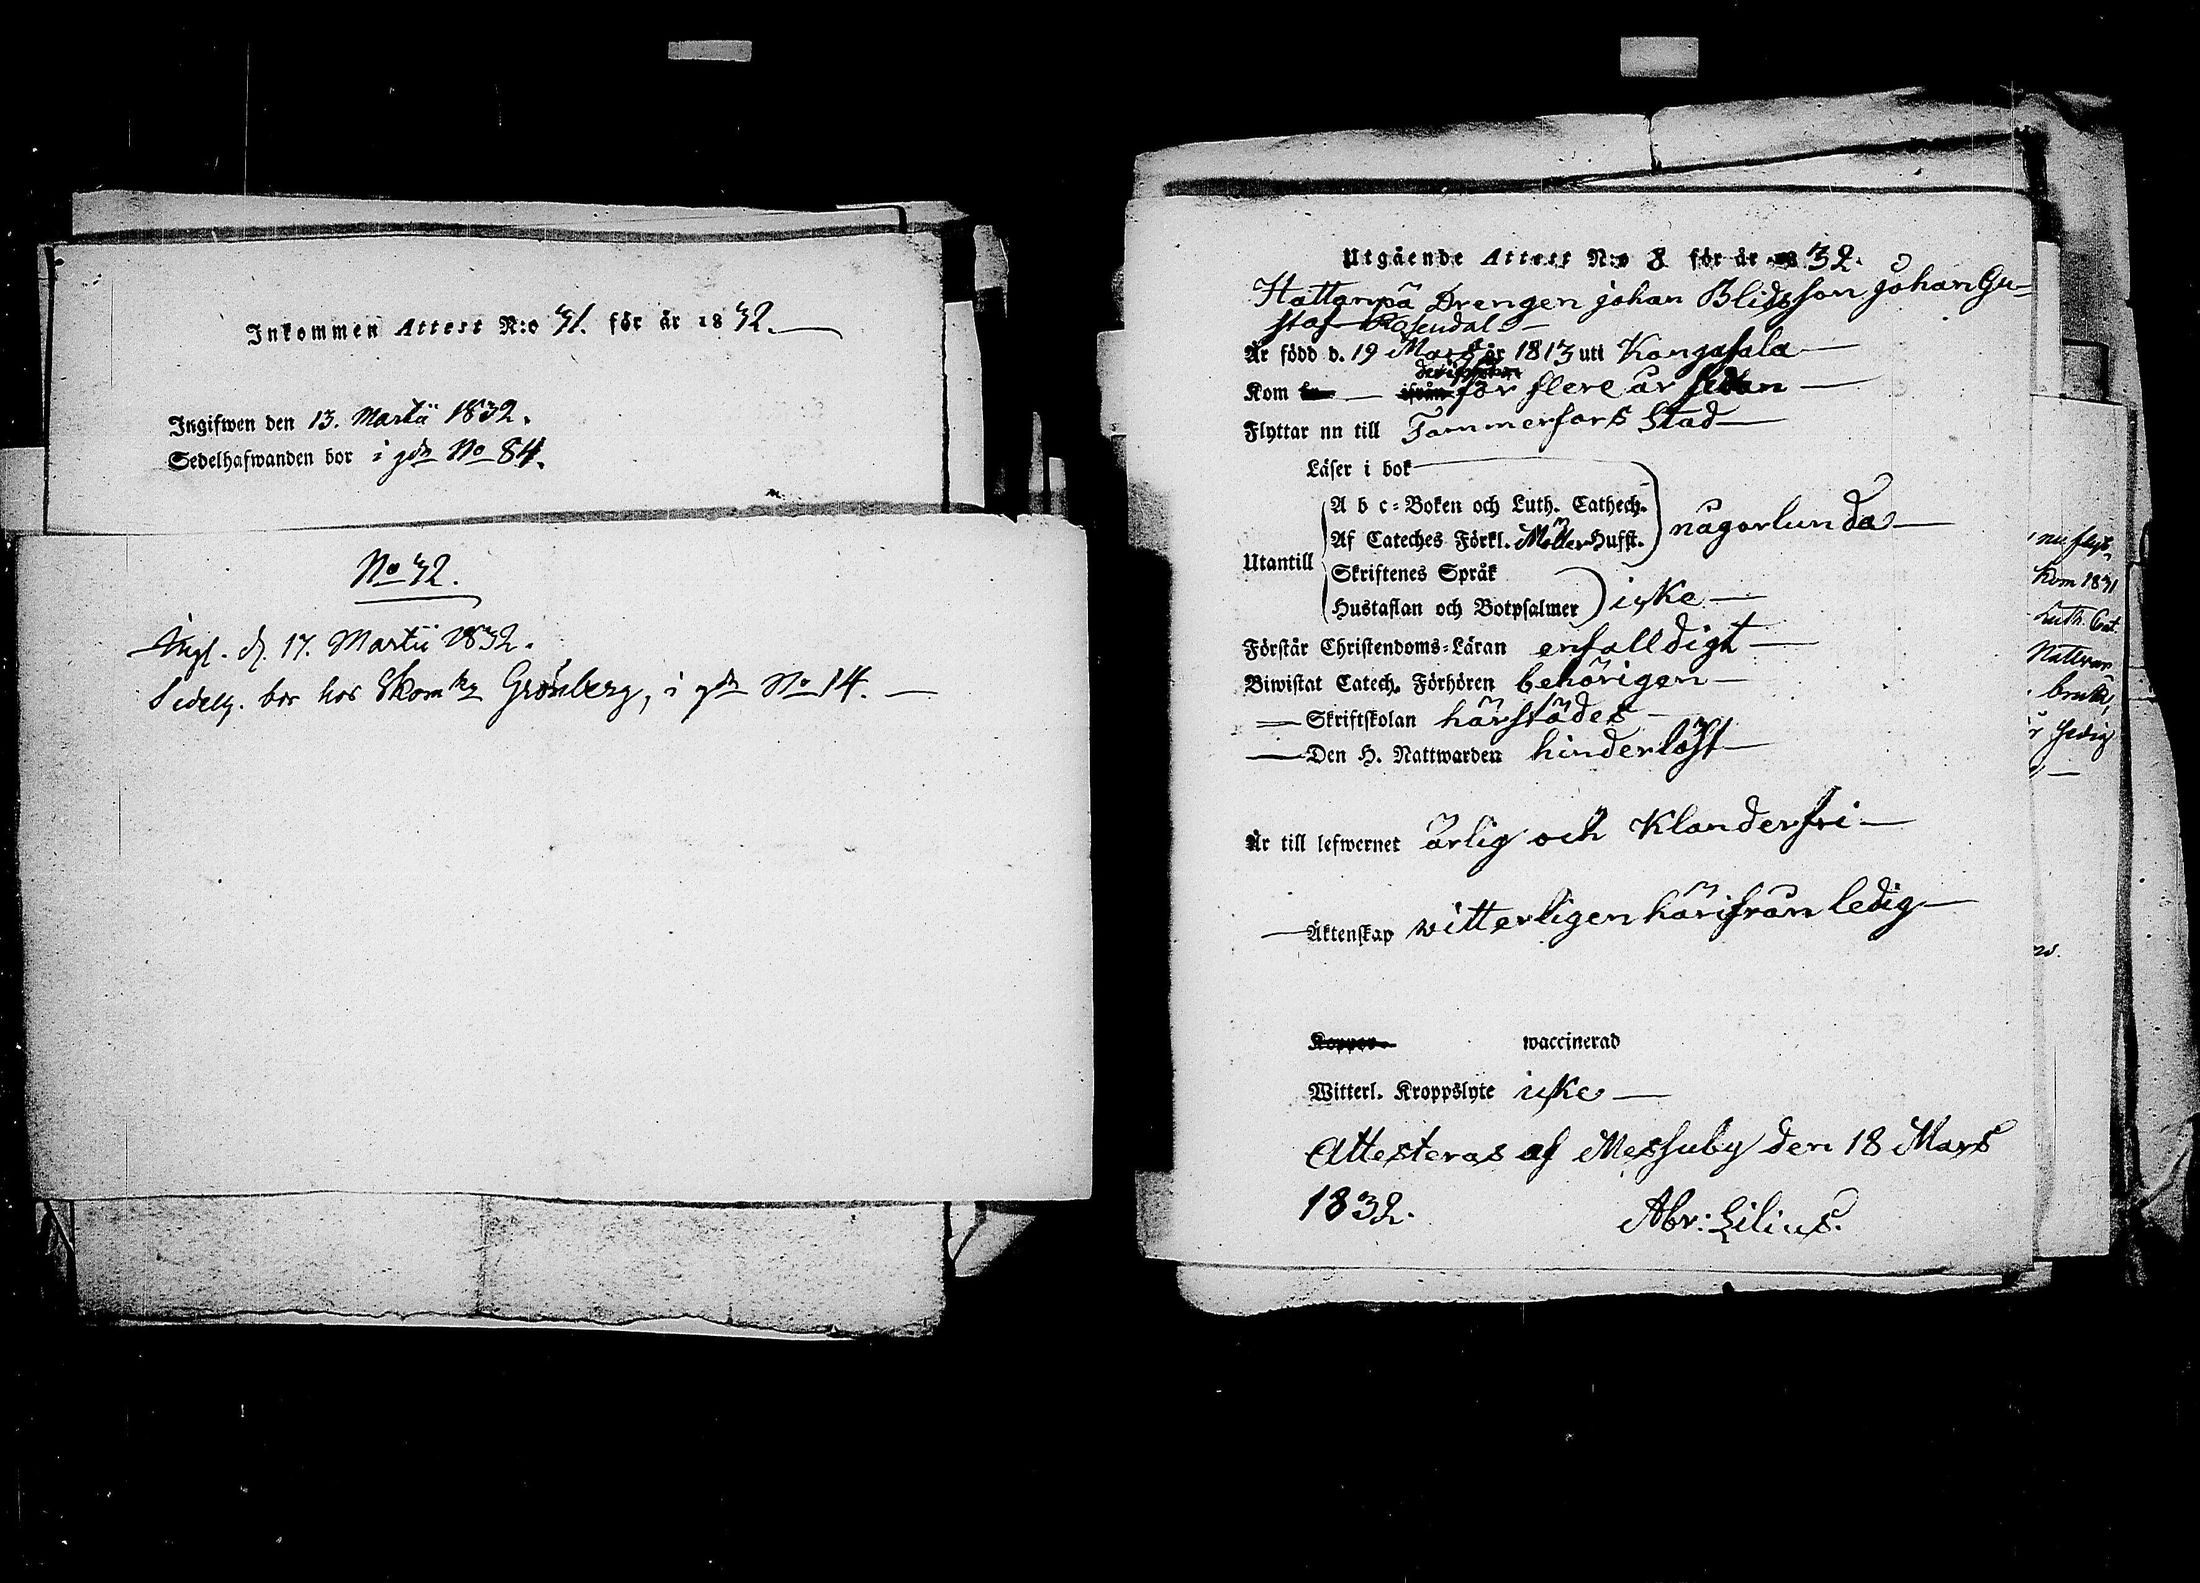 Inkommen Attest N:o 31. för år 1832.
Ingifwen den 13. Martii 1832.
Sedelhafwanden bor i gdn No 84.
No 32.
Ingl. d. 17. Martii 1832.
Sedelh. bor hos Skomkr Grönberg, i gdn No 14.
Utgående Attest N:o 8 för år 1832.
Hattanpä Drengen Johan Johan Gu-
staf Rosendal
Är född d. 19 Mars år 1813 uti Kangasala
Kom för flere år sedan
Flyttar nn till Tammerfors Stad
Läser i bok
A b c-Boken och Luth. Cathech.
någorlunda
Af Cateches Förkl. Möller Hufst.
Utantill
Skriftenes Språk
Hustaflan och Botpsalmer icke
Förstår Christendoms-Läran enfalldigt
Biwistat Catech. Förhören behörigen
Skriftskolan härstädes
Den H. Nattwarden hinderlöst
Är till lefwernet ärlig och Klanderfri
Äktenskap witterligen härifrån ledig
Koppor waccinerad
Witterl. Kroppslyte icke
Attesteras af Messuby den 18 Mars
1832. Abr: Lilius.
nu flyt-
Kom 1831
Luth. Cat.
Nattvar-
brukt,
ledig